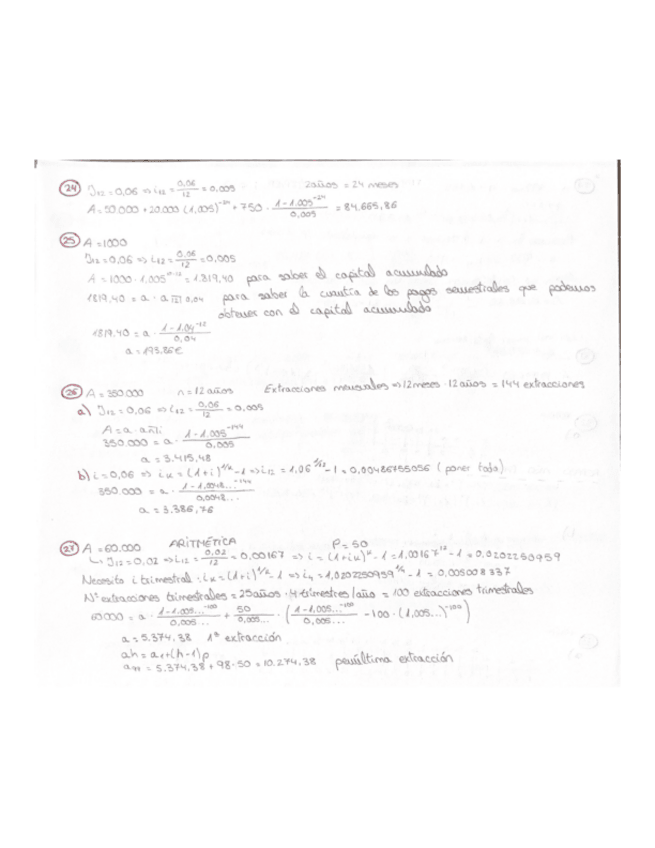 24 J12 = 0,06 ⇒ i12 = 0,06/12 = 0,005 2 años = 24 meses
A = 50.000 + 20.000 (1,005)^-24 + 750 · (1-1.005^-24)/0,005 = 84.665,86
25 A = 1000
J12 = 0,06 ⇒ i12 = 0,06/12 = 0,005
A = 1000 · 1,005 = 1.819,40 para saber el capital acumulado
1819,40 = a · a 12 0,04 para saber la cuantía de los pagos semestrales que podemos
obtener con el capital acumulado
1819.40 = a · (1-1.04^-12)/0,04
a = 193,86€
26 A = 350.000 n = 12 años Extracciones mensuales ⇒ 12 meses · 12 años = 144 extracciones
a) J12 = 0,06 ⇒ i12 = 0,06/12 = 0,005
A = a · a n i
350.000 = a · (1-1.005^-144)/0,005
a = 3.415,48
b) i = 0,06 ⇒ ik = (1+i)^1/k - 1 ⇒ i12 = 1,06^1/12 - 1 = 0,00486755056 (poner todo)
350.000 = a · (1-1,0048...^-144)/0,0048...
a = 3.386,76
27 A = 60.000 ARITMÉTICA P = 50
↳ J12 = 0,02 ⇒ i12 = 0,02/12 = 0,00167 ⇒ i = (1+ik)^k - 1 = 1,00167^12 - 1 = 0,0202250959
Necesito i trimestral: ik = (1+i)^1/k - 1 ⇒ i4 = 1,0202250959^1/4 - 1 = 0,005008337
Nº extracciones trimestrales = 25 años · 4 trimestres/año = 100 extracciones trimestrales
60.000 = a · (1-1.005...^-100)/0,005... + 50/0,005... · ((1-1.005...^-100)/0,005... - 100 · (1,005...)^-100)
a = 5.374,38 1ª extracción
ah = a1 + (h-1)p
a99 = 5.374,38 + 98·50 = 10.274,38 penúltima extracción